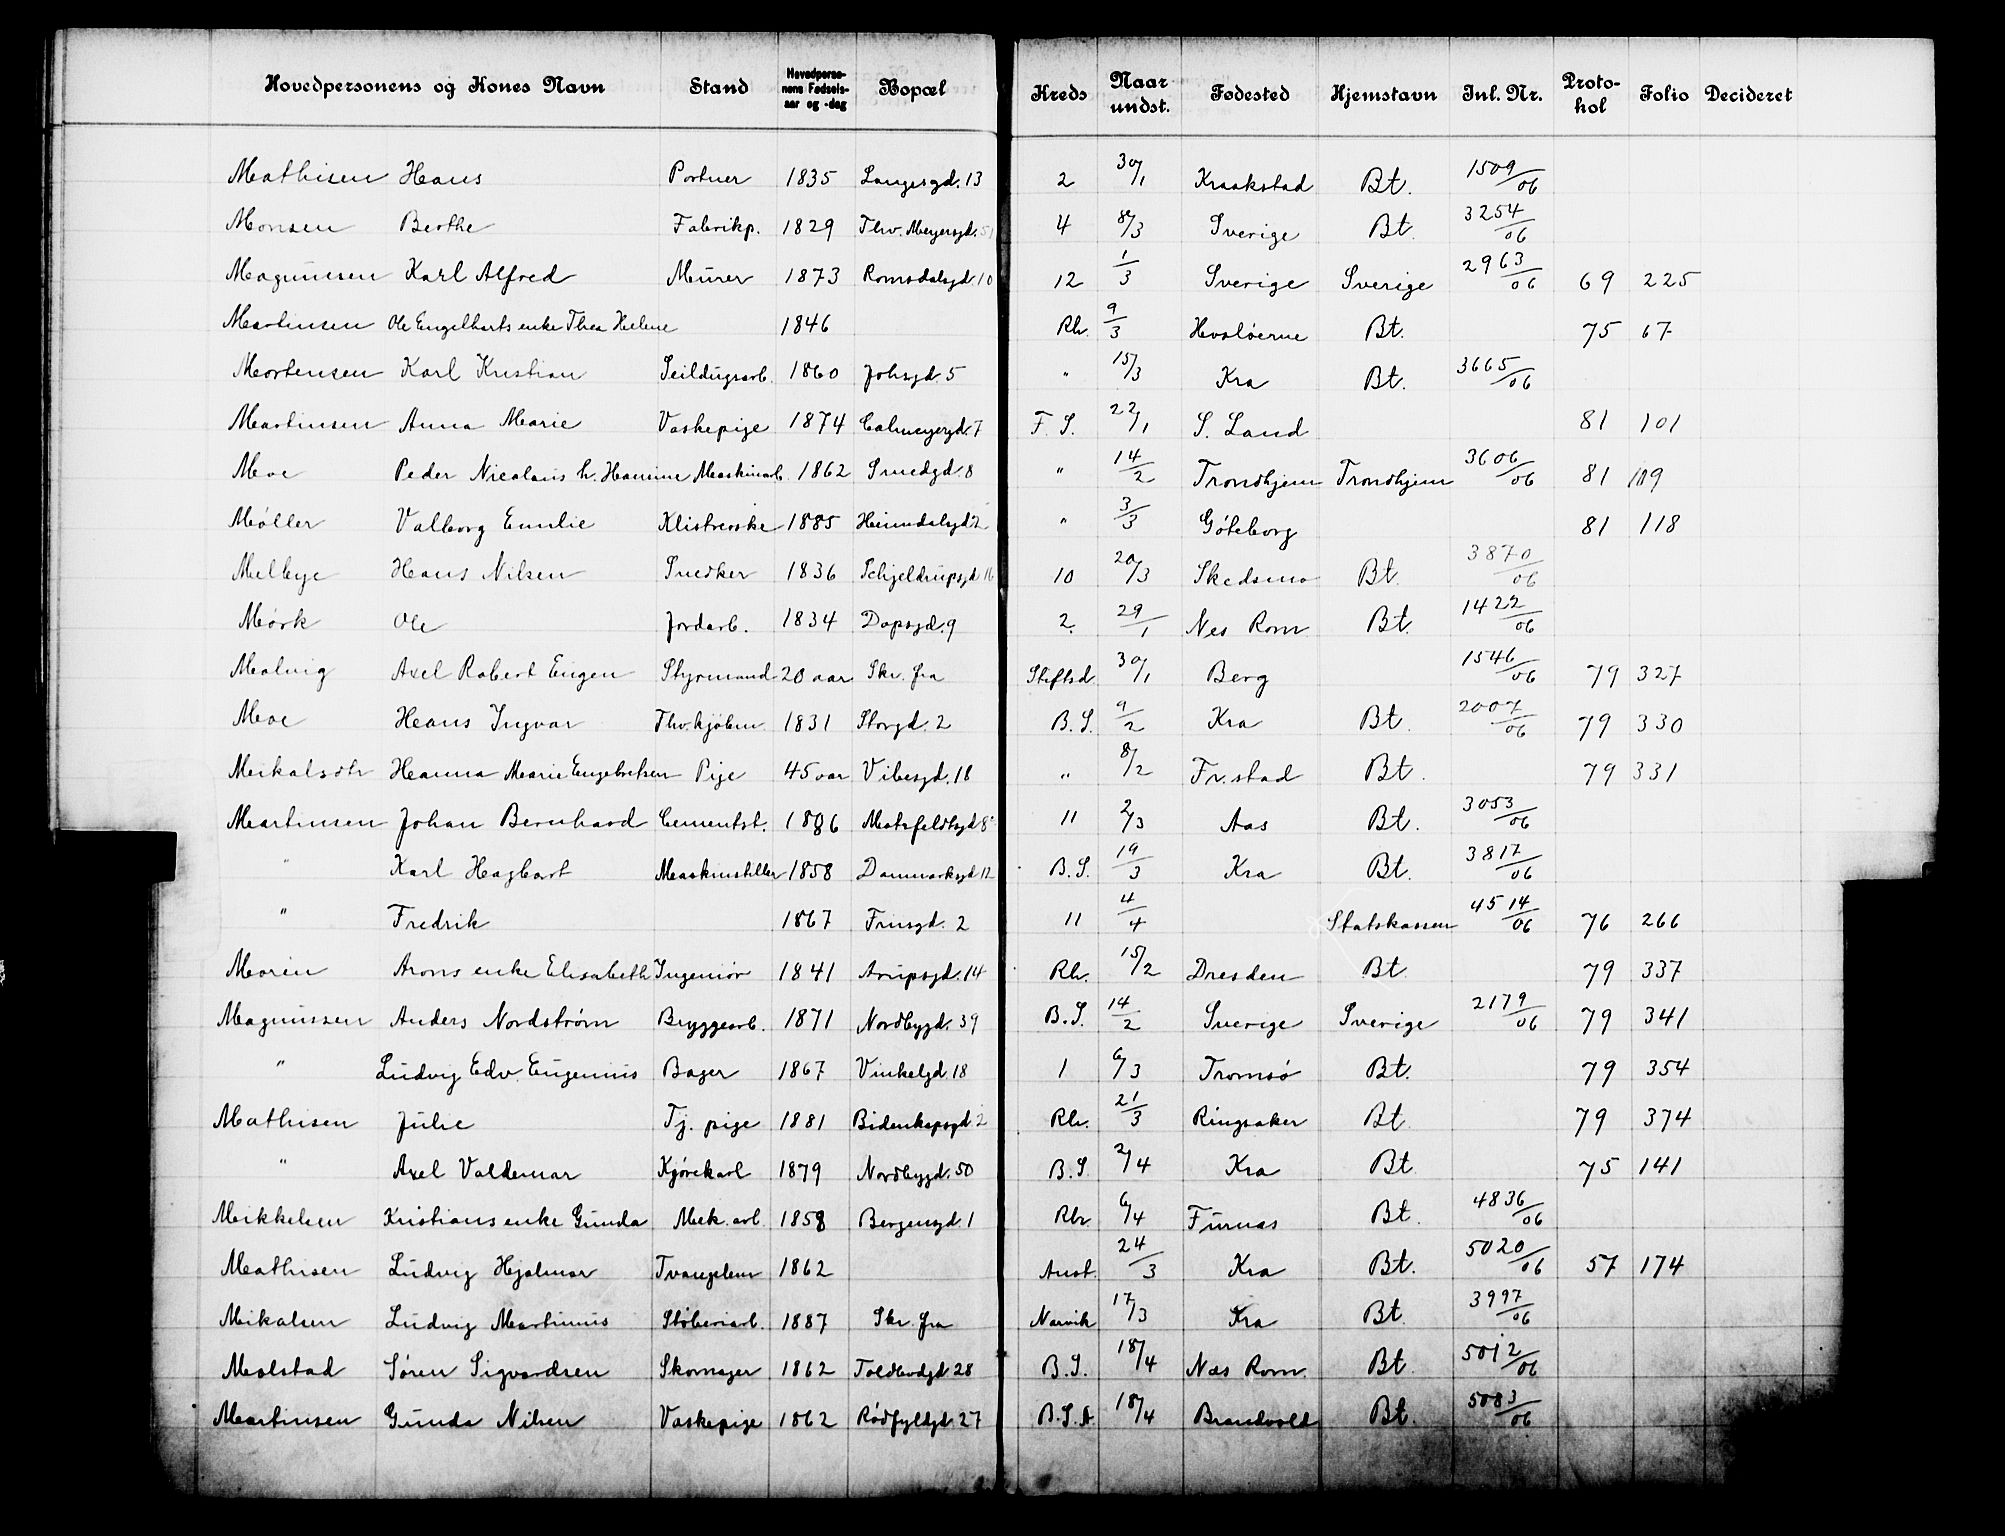 Hovedpersonens og Kones Navn Stand Hovedpersonens Fødselsaar og -dag Bopæl Kreds Naar undst. Fødested Hjemstavn Inl. Nr. Protokol Folio Decideret
Mathisen Hans Portner 1835 Langesgd. 13 2 30/1 Kraakstad Bt. 1509/06
Monsen Berthe Fabrikp. 1829 Thv. Meyersgd. 51 4 8/3 Sverige Bt. 3254/06
Magnussen Karl Alfred Murer 1873 Romsdalsgd. 10 12 1/3 Sverige Sverige 2963/06 69 225
Martinsen Ole Engelharts enke Thea Helene 1846 Rh. 9/3 Hvaløerne Bt. 75 67
Mortensen Karl Kristian Seildugsarb. 1860 Johsgd. 5 " 15/3 Kra Bt. 3665/06
Martinsen Anna Marie Vaskepige 1874 Calmeyergd. 7 F. S. 22/1 S. Land 81 101
Moe Peder Nicolaus h. Hansine Maskinarb. 1862 Smedgd. 8 " 14/2 Trondhjem Trondhjem 3606/06 81 119
Møller Valborg Emilie Klistrerske 1885 Heimdalsgd 2 " 3/3 Göteborg 81 118
Melbye Hans Nilsen Snedker 1836 Schjeldrupsgd 16 10 20/3 Skedsmo Bt. 3870/06
Mørk Ole Jordarb. 1834 Dapsgd. 9 2. 29/1 Nes Rom. Bt. 1422/06
Malvig Axel Robert Eugen Styrmand 20 aar Skr. fra Stiftsd. 30/1 Berg 1546/06 79 327
Moe Hans Ingvar Fhv. kjøbm. 1831 Storgd. 2 B. S. 9/2 Kra Bt. 2007/06 79 330
Mikalsdtr Hanna Marie Engebretsen Pige 45 aar Vibesgd. 18 " 8/2 Fr.stad Bt. 79 331
Martinsen Johan Bernhard Cementst. 1886 Motzfeldtsgd 8 11 2/3 Aas Bt. 3053/06
" Karl Hagbart Maskinstiller 1858 Danmarksgd 12 B. S. 19/3 Kra Bt. 3817/06
" Fredrik 1867 Friisgd. 2 11 4/4 Statskassen 4514/06 76 266
Morin Arons enke Elisabeth Ingeniør 1841 Arupsgd. 14 Rh. 15/2 Dresden Bt. 79 337
Magnussen Anders Nordstrøm Bryggearb. 1871 Nordbygd. 39 B. S. 14/2 Sverige Sverige 2179/06 79 341
" Ludvig Edv. Eugenius Bager 1867 Vinkelgd. 18 1 6/3 Tromsø Bt. 79 354
Mathisen Julie Tj. pige 1881 Bidenkapsgd 2 Rh. 21/3 Ringsaker Bt. 79 374
" Axel Valdemar Kjørekarl 1879 Nordbygd. 50 B. S. 2/4 Kra Bt. 75 141
Mikkelsen Kristians enke Gunda Mek. arb. 1858 Bergensgd. 1 Rh. 6/4 Furnæs Bt. 4836/06
Mathisen Ludvig Hjalmar Tvangslem 1862 Anst. 24/3 Kra Bt. 5020/06 57 174
Mikalsen Ludvig Martinius Støberiarb. 1887 Skr. fra Narvik 17/3 Kra Bt. 3997/06
Malstad Søren Sigvardsen Skomager 1862 Toldbodgd 28 B. S. 18/4 Næs Rom. Bt. 5012/06
Martinsen Gunda Nilsen Vaskepige 1862 Rødfyldgd. 27 B. S. A. 18/4 Brandvold Bt. 5083/06